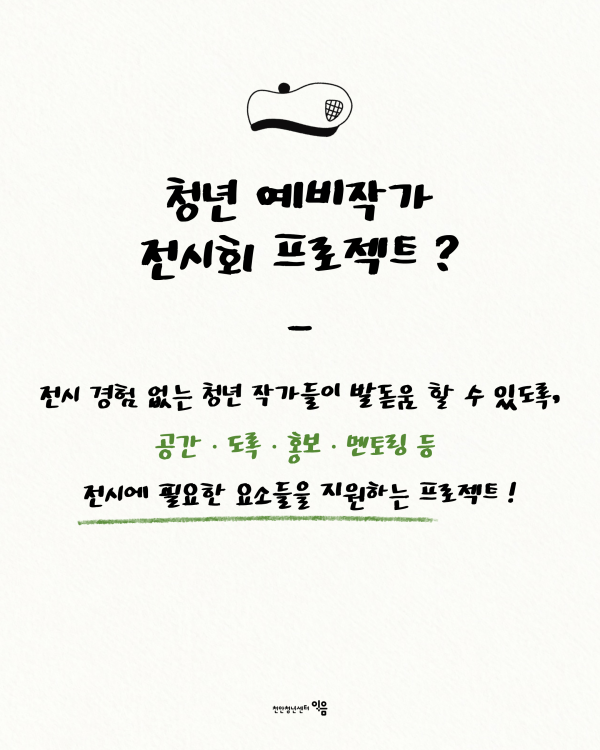 청년 예비작가
전시회 프로젝트 ?
전시 경험 없는 청년 작가들이 발돋움 할 수 있도록,
공간 · 도록 · 홍보 · 멘토링 등
전시에 필요한 요소들을 지원하는 프로젝트 !
천안청년센터 이음